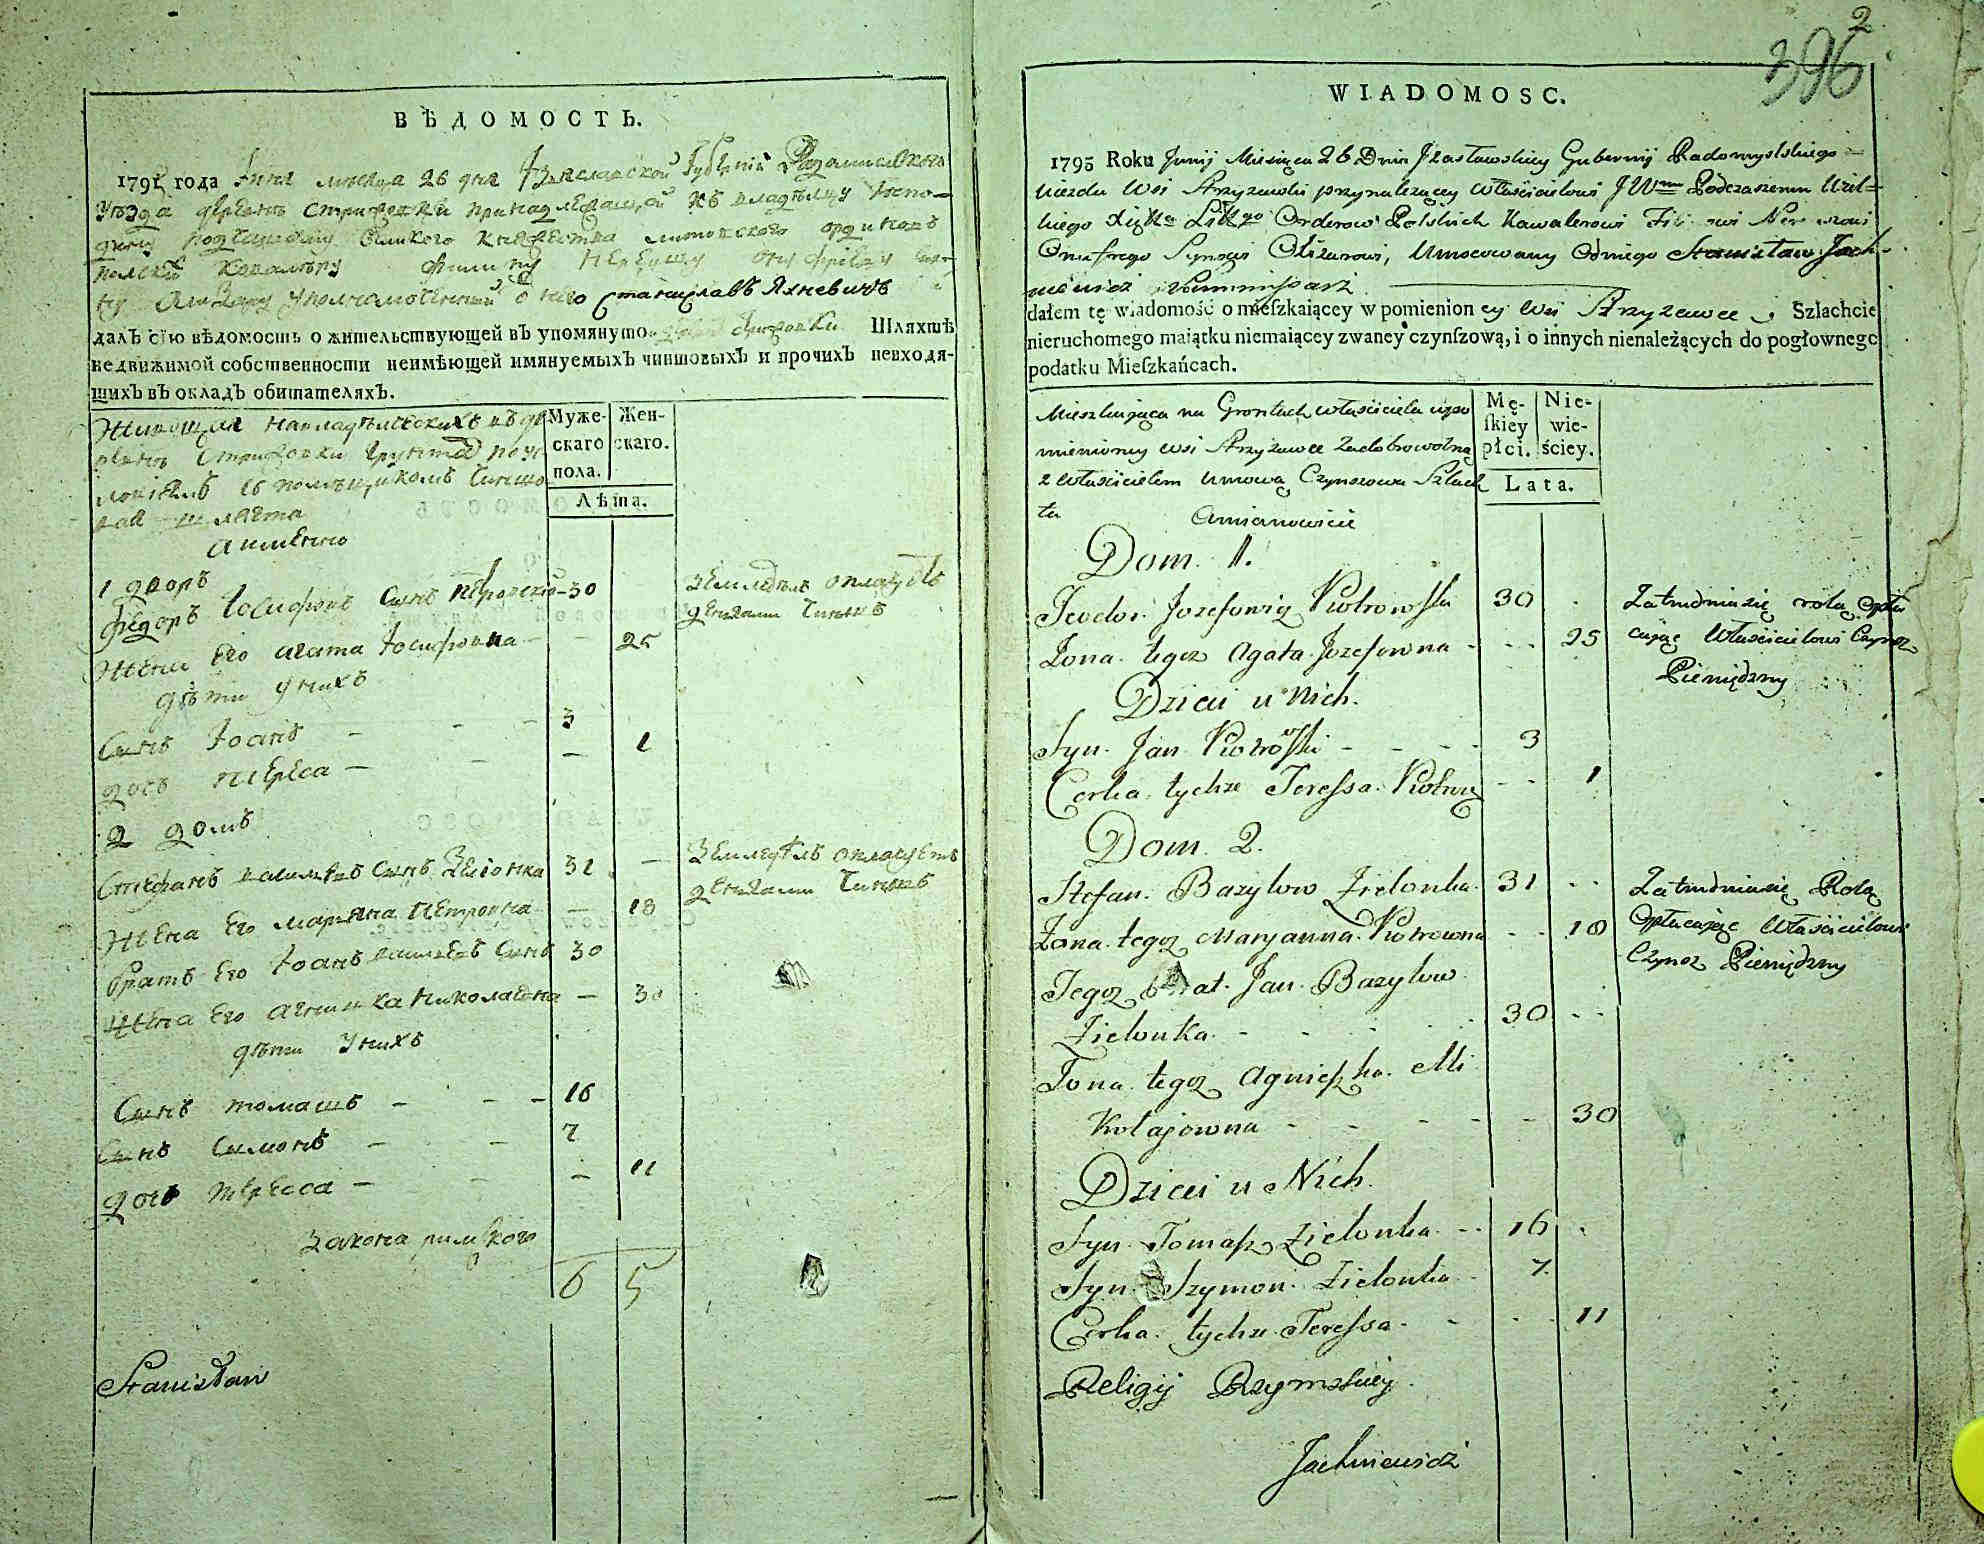 ВѢДОМОСТЬ.
1795 года Іюня мѣсяца 26 дня Ізяславской Губерніи Радомысльскаго
уѣзда деревнѣ Стрижовки принадлежащей къ владѣльцу госпо-
дину подчашему великого княжества литовского ординовъ
польскихъ кавалеру филипу онуфрему
ку Олизару уполномоченный о него Станиславъ Яхневичъ
далъ сію вѣдомость о жительствующей въ упомянуто Шляхтѣ
недвижимой собственности неимѣющей имянуемыхъ чиншовыхъ и прочихъ невходя-
щихъ въ окладъ обитателяхъ.
Живущая на владѣльческихъ въ де
ревнѣ Стрижовки грунтах по ус
ловіямъ съ помѣщикомъ чиншо
вая шляхта
а имѣнно
Муже- Жен-
скаго скаго.
пола.
Лѣта.
1 дворъ
Федоръ Іосифовъ сынъ піотровскій 30
земледѣлъ оплацуетъ
денгами чиншъ
Жена его агата Іосифовна - - 25
дѣти у нихъ
Сынъ Іоанъ - - - 3
дочь тереса - - - 1
2 домъ
Стефанъ василевъ сынъ Зелонка 31 -
Земледѣлъ оплацуетъ
денгами чиншъ
Жена его марьяна петровна - 18
братъ его Іоанъ василевъ сынъ 30
Жена его агнишка николаевна - 30
дѣти у нихъ
Сынъ томашъ - - - 16
Сынъ Симонъ - - 7
дочь тересса - - - 11
закона римского
6 5
Stanisław
2
396
WIADOMOSC.
1795 Roku Junij Miesiąca 26 Dnia Izasławskiey Gubernij Radomyslskiego
uiezdu Wsi Stryzewki przynalezącey Właścicielowi JWmu Podczaszemu Wiel-
kiego Xięstwa Littgo Orderow Polskich Kawalerowi
Onufrego Synowi Olizarowi, Umocowany Odniego Stanisław Jach-
niewicz Kommissarz
dałem tę wiadomość o mieſzkaiącey w pomienion ey Wsi Stryzewce Szlachcie
nieruchomego maiątku niemaiącey zwaney czynſzową, i o innych nienależących do pogłownego
podatku Mieſzkańcach.
Mieszkaiąca na Grontach właściciela wspo
mnioney wsi Stryzewce zadobrowolną
z właścicielem Umową Czynszowa Szlach
ta
Amianowicie
Mę- Nie-
ſkiey wie-
płci. ściey.
Lata.
Dom. 1.
Teodor. Jozefowicz Piotrowski 30 .
Zatrudniasię rolą Opła
cając Właścicielowi Czynsz
Pieniędzmy
Zona. tegoz Agata Jozefowna - - - 25
Dzieci u Nich.
Syn. Jan Piotrowski - - - - 3
Corka tychze Teressa. Piotrow - - 1
Dom. 2.
Stefan. Bazylow Zielonka. 31 - -
Zatrudniasię Rolą
Opłacając Właścicielowi
Czynsz Pieniędzmy
Zona. tegoz Maryanna. Piotrowna - - 18
Tegoz Brat. Jan. Bazylow
Zielonka. - - - - 30 - -
Zona. tegoz Agnieszka. Mi
kołajowna - - - - - 30
Dzieci u Nich.
Syn. Tomasz Zielonka - - 16 .
Syn. Szymon. Zielonka - 7.
Corka. tychze. Teressa. - - - 11
Religij Rzymskiey.
Jachniewicz